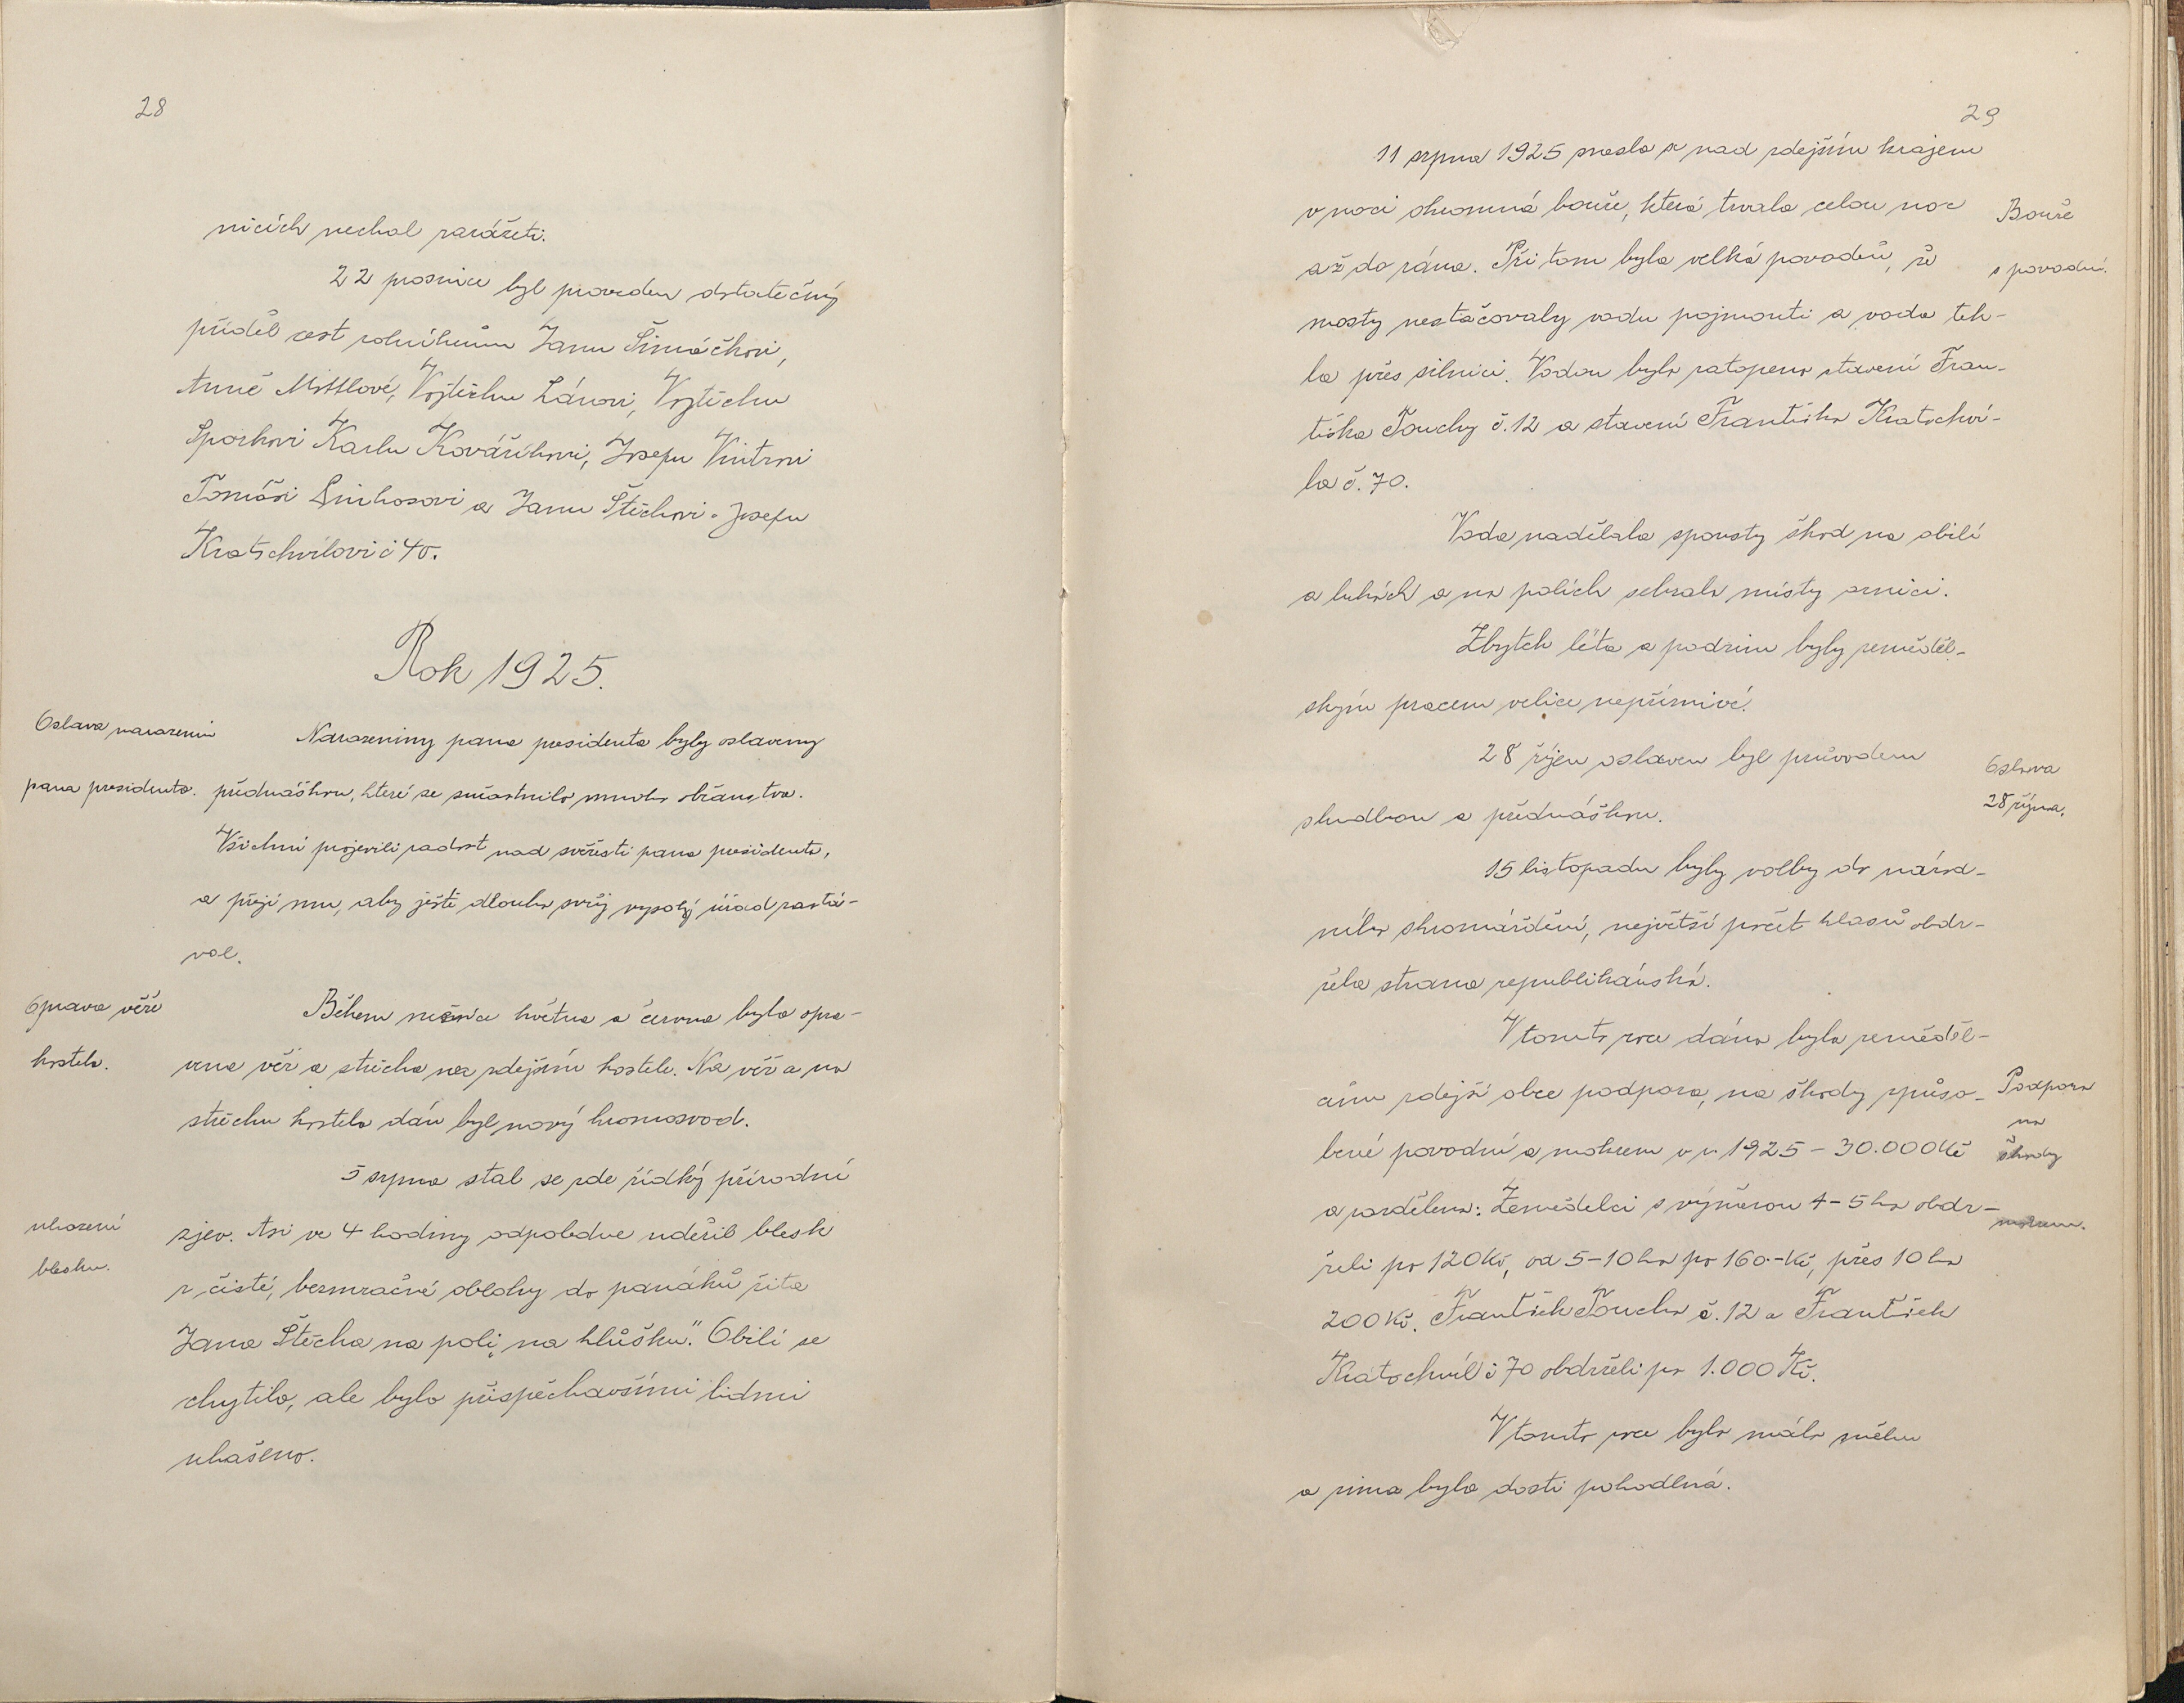 28
nicích nechal zarážeti.
22 prosince byl proveden dstatečný
příděl cest rolníkům Janu Šimáčkovi,
Anně Mottlové, Vojtěchu Lánovi, Vojtěchu
Sporkovi Karlu Kovaříkovi, Josefu Vintrovi
Tomáši a Janu Štěchovi a Josefu
Kratochvílovi č 40.
Rok 1925.
Oslava narozenin
pana presidenta.
Narozeniny pana presidenta byly oslaveny
přednáškou, které se súčastnilo mnoho občanstva.
Všichni projevili radost nad svěžestí pana presidenta,
a přejí mu, aby ještě dlouho svůj vysoký úřad zastá-
val.
Oprava věže
kostela.
Během měsíce května a června byla opra-
vena věž a střecha na zdejším kostele. Na věž a na
střechu kostela dán byl nový hromosvod.
5 srpna stal se zde řídký přírodní
uhození
blesku.
zjev. Asi ve 4 hodiny odpoledne udeřil blesk
z čisté, bezmračné oblohy do panáků žita
Jana Štěcha na poli „na hlůšku." Obilí se
chytilo, ale bylo přispěchavšími lidmi
uhašeno.
29
11 srpna 1925 snesla se nad zdejším krajem
v noci ohromná bouře, která trvala celou noc
až do rána. Při tom byla velká povodeň, že
Bouře
s povodní.
mosty nestačovaly vodu pojmouti a voda tek-
la přes silnici. Vodou bylo zatopeno stavení Fran-
tiška Touchy č. 12 a stavení Františka Kratochví-
la č. 70.
Voda nadělala spousty škod na obilí
a lukách a na polích sebrala místy ornici.
Zbytek léta a podzim byly zeměděl-
ským pracem velice nepříznivé.
28 říjen oslaven byl průvodem
s hudbou a přednáškou.
Oslava
28 října.
15 listopadu byly volby do národ-
ního shromáždění, největší počet hlasů obdr-
žela strana republikánská.
V tomto roce dána byla zeměděl-
cům zdejší obce podpora, na škody způso-
bené povodní a mokrem v r. 1925 - 30.000 Kč
Podpora
na
škody
mokrem.
a rozdělena: Zemědělci s výměrou 4-5 ha obdr-
želi po 120 Kč, od 5-10 ha po 160.- Kč, přes 10 ha
200 Kč. František Toucha č. 12 a František
Kratochvíl č 70 obdrželi po 1.000 Kč.
V tomto roce bylo málo sněhu
a zima byla dosti pohodlná.